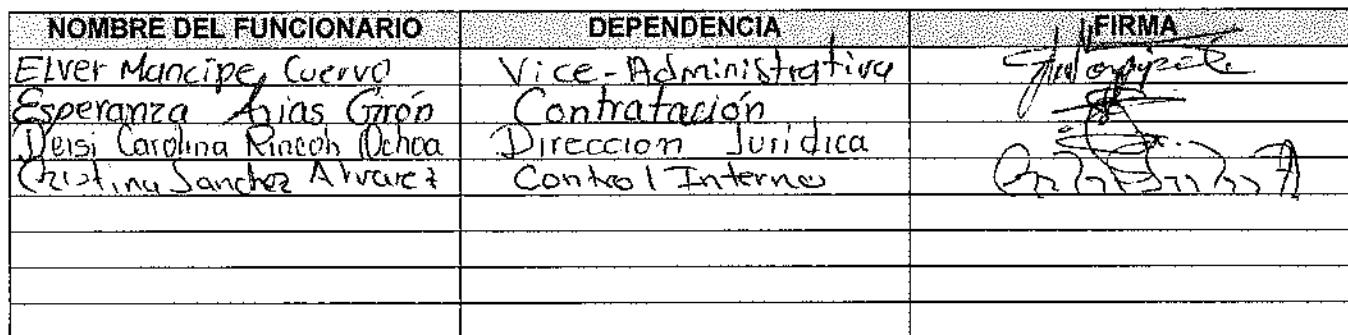 NOMBRE DEL FUNCIONARIO DEPENDENCIA FIRMA
Elver Mancipe Cuervo Vice-Administrativa
Esperanza Arias Girón Contratación
Deisi Carolina Rincon Ochoa Direccion Juridica
Cristina Sanchez Alvarez Control Interno